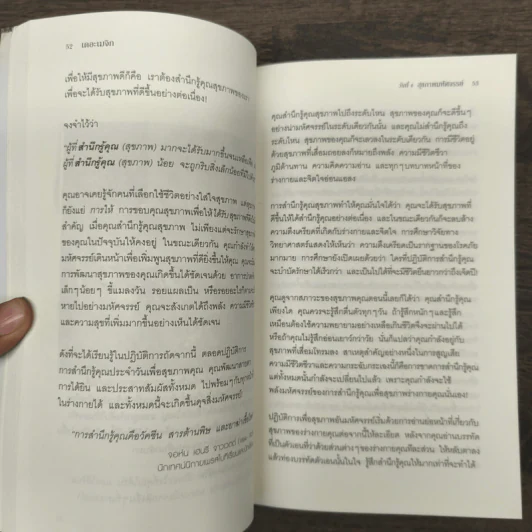 52 เดอะเมจิก
เพื่อให้มีสุขภาพดีก็คือ เราต้องสำนึกรู้คุณสุขภาพของเรา
เพื่อจะได้รับสุขภาพที่ดีขึ้นอย่างต่อเนื่อง!
จงจำไว้ว่า
"ผู้ที่สำนึกรู้คุณ (สุขภาพ) มากจะได้รับมากขึ้นจนเหลือเฟือ
ผู้ที่สำนึกรู้คุณ (สุขภาพ) น้อย จะถูกริบสิ่งเล็กน้อยที่มี
คุณอาจเคยรู้จักคนที่เลือกใช้ชีวิตอย่างใส่ใจสุขภาพ
ก็ยังแย่ การให้ การขอบคุณสุขภาพเพื่อให้ได้รับสุขภาพ
สำคัญ เมื่อคุณสำนึกรู้คุณสุขภาพ ไม่เพียงแต่จะรักษา
ของคุณในปัจจุบันให้คงอยู่ ในขณะเดียวกัน คุณกำลัง
มหัศจรรย์เดินหน้าเพื่อเพิ่มพูนสุขภาพที่ดียิ่งขึ้นให้คุณ
การพัฒนาสุขภาพของคุณเกิดขึ้นได้ชัดเจนด้วย อาการ
เล็กๆน้อยๆ ขี้แมลงวัน รอยแผลเป็น หรือรอยอะไร
หายไปอย่างมหัศจรรย์ คุณจะสังเกตได้ถึงพลัง ความมีชีวิต
และความสุขที่เพิ่มมากขึ้นอย่างเห็นได้ชัดเจน
ดังที่จะได้เรียนรู้ในปฏิบัติการถัดจากนี้ ตลอดปฏิบัติการ
การสำนึกรู้คุณประจำวันเพื่อสุขภาพ คุณพัฒนา
การได้ยิน และประสาทสัมผัสทั้งหมด ไปพร้อมๆกับทุก
ในร่างกายได้ และทั้งหมดนี้จะเกิดขึ้นดุจสิ่งมหัศจรรย์!
"การสำนึกรู้คุณคือวัคซีน สารต้านพิษ และยาฆ่าเชื้อ
จอห์น เฮนรี่ จาวเวตต์
วันที่ 4 สุขภาพมหัศจรรย์ 53
คุณสำนึกรู้คุณสุขภาพไปถึงระดับไหน สุขภาพของคุณก็จะดีขึ้นๆ
อย่างน่ามหัศจรรย์ในระดับเดียวกันนั้น และคุณไม่สำนึกรู้คุณถึง
ระดับไหน สุขภาพของคุณก็จะเลวลงในระดับเดียวกัน การมีชีวิตอยู่
ด้วยสุขภาพที่เสื่อมถอยลงก็หมายถึงพลัง ความมีชีวิตชีวา
ภูมิต้านทาน ความคิดความอ่าน และทุกๆบทบาทหน้าที่ของ
ร่างกายและจิตใจอ่อนแอลง
การสำนึกรู้คุณสุขภาพทำให้คุณมั่นใจได้ว่า คุณจะได้รับสุขภาพที่
ดีขึ้นให้ได้สำนึกรู้คุณอย่างต่อเนื่อง และในขณะเดียวกันก็จะลบล้าง
ความตึงเครียดที่เกิดกับร่างกายและจิตใจ การศึกษาวิจัยทาง
วิทยาศาสตร์แสดงให้เห็นว่า ความตึงเครียดเป็นรากฐานของโรคภัย
มากมาย การศึกษายังเปิดเผยด้วยว่า ใครที่ปฏิบัติการสำนึกรู้คุณ
จะบำบัดรักษาได้เร็วกว่า และเป็นไปได้ที่จะมีชีวิตยืนยาวกว่าถึงเจ็ดปี!
คุณดูจากสภาวะของสุขภาพคุณตอนนี้เลยก็ได้ว่า คุณสำนึกรู้คุณ
เพียงใด คุณควรจะรู้สึกตื่นตัวทุกๆวัน ถ้ารู้สึกหนักๆและรู้สึก
เหมือนต้องใช้ความพยายามอย่างเหลือเกินชีวิตจึงจะผ่านไปได้
หรือถ้าคุณไม่รู้สึกอ่อนเยาว์กว่าวัย นั่นก็แปลว่าคุณกำลังอยู่กับ
สุขภาพที่เสื่อมโทรมลง สาเหตุสำคัญอย่างหนึ่งในการสูญเสีย
ความมีชีวิตชีวาและความกระฉับกระเฉงนี้ก็คือการขาดการสำนึกรู้คุณ
แต่ทั้งหมดนั้นกำลังจะเปลี่ยนไปแล้ว เพราะคุณกำลังจะใช้
พลังมหัศจรรย์ของการสำนึกรู้คุณเพื่อสุขภาพร่างกายคุณนั่นเอง!
ปฏิบัติการเพื่อสุขภาพอันมหัศจรรย์เริ่มด้วยการอ่านย่อหน้าที่เกี่ยวกับ
สุขภาพของร่างกายคุณต่อจากนี้ให้ละเอียด หลังจากคุณอ่านบรรทัด
ที่เป็นตัวเอนที่ว่าด้วยส่วนต่างๆของร่างกายคุณทีละส่วน ให้หลับตาลง
แล้วท่องบรรทัดตัวเอนนั้นในใจ รู้สึกสำนึกรู้คุณให้มากเท่าที่จะทำได้